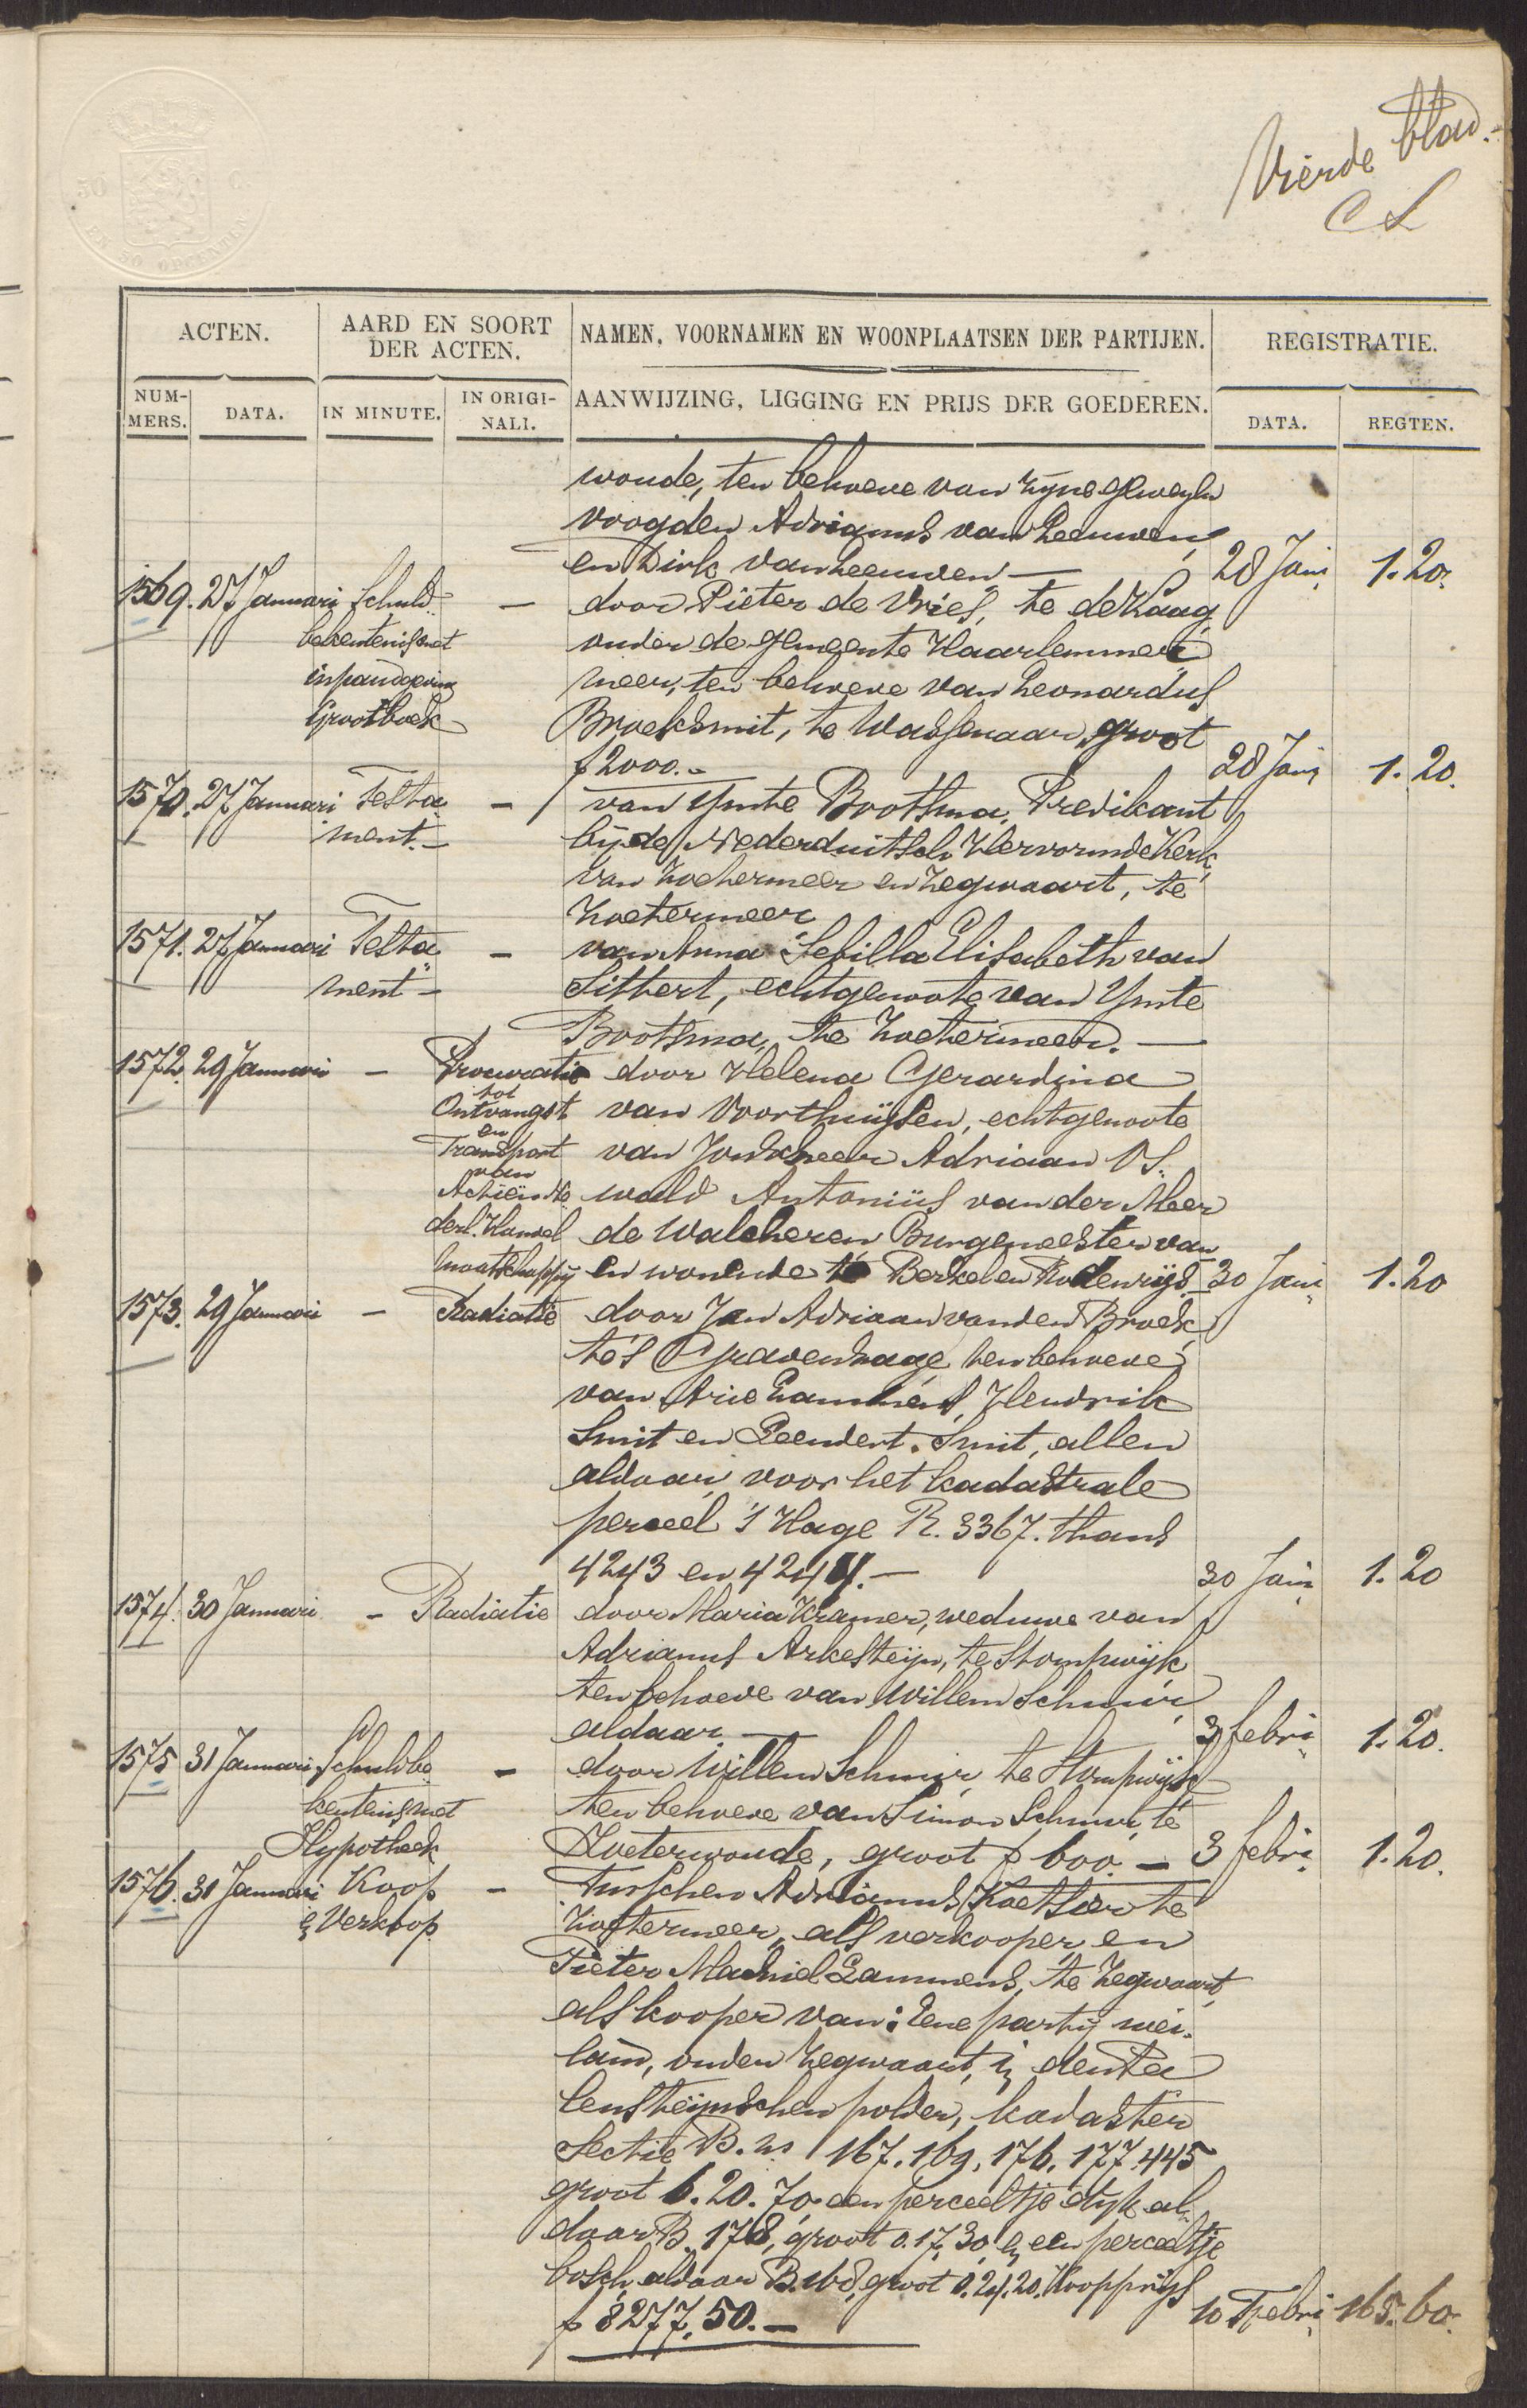 Vierde blad.
CL
ACTEN.
AARD EN SOORT
DER ACTEN.
NAMEN, VOORNAMEN EN WOONPLAATSEN DER PARTIJEN.
REGISTRATIE.
NUM-
MERS.
DATA.
IN MINUTE.
IN ORIGI-
NALI.
AANWIJZING, LIGGING EN PRIJS DER GOEDEREN.
DATA.
REGTEN.
woude, ten behoeve van zijne gewezen
voogden Adrianus van Leeuwen
en Dirk van Leeuwen — 28 Jani 1.20.
1569. 27 Januari Schuld- — door Pieter de Vries, te de Kaag
bekentenis met onder de gemeente Haarlemmer
inpandgeving meer, ten behoeve van Leonardus
Grootboek Broeksmit, te Wassenaar, groot
f 2000.- 28 Jani 1.20.
1570. 27 Januari Testa — van Ymte Bootsma, Predikant
ment. — bij de Nederduitsch Hervormde Kerk
van Zoetermeer en Zegwaart, te
Zoetermeer
1571. 27 Januari Testa — van Anna Sebilla Elisabeth van
ment — Sittert, echtgenoote van Ymte
Bootsma, te Zoetermeer. —
1572. 29 Januari — Procuratie door Helena Gerardina
tot
Ontvangst van Voorthuijsen, echtgenoote
en
Transport van Jonkheer Adriaan OS.
van
Actiën Ne wald Antonius van der Meer
derl. Handel de Walcheren Burgemeester van
Maatschappij en wonende te Berkel en Rodenrijs 30 Jani 1.20
1573. 29 Januari — Radiatie door Jan Adriaan van den Broek
te 's Gravenhage ten behoeve
van Arie Lammens, Hendrik
Smit en Leendert Smit, allen
aldaar, voor het kadastrale
perceel 's Hage R. 3367. thans
4243 en 4244. — 30 Jani 1.20
1574. 30 Januari — Radiatie door Maria Kramer, weduwe van
Adrianus Arkesteijn, te Stompwijk
ten behoeve van Willem Schmir
aldaar — 3 febri 1.20.
1575 31 Januari Schuldbe — door Willem Schmir, te Stompwijk
kentenis met ten behoeve van Simon Schmir, te
Hypotheek Zoeterwoude, groot f 600. — 3 febri 1.20.
1576. 31 Januari Koop — Tusschen Adrianus Koetsier te
& Verkoop Zoetermeer, als verkooper, en
Pieter Machiel Lammens, te Zegwaart,
als kooper van: Eene partij wei-
land, onder Zegwaart, in den Pa
lensteijnschen polder, kadaster
Sectie B. ns 167. 169. 176. 177. 445
groot 6.20.70. een perceeltje dijk al
daar B. 178, groot 0.17.30 & een perceeltje
bosch aldaar B. 168, groot 0.24.20. Koopprijs
f 8277.50. — 10 Febri 165.60.